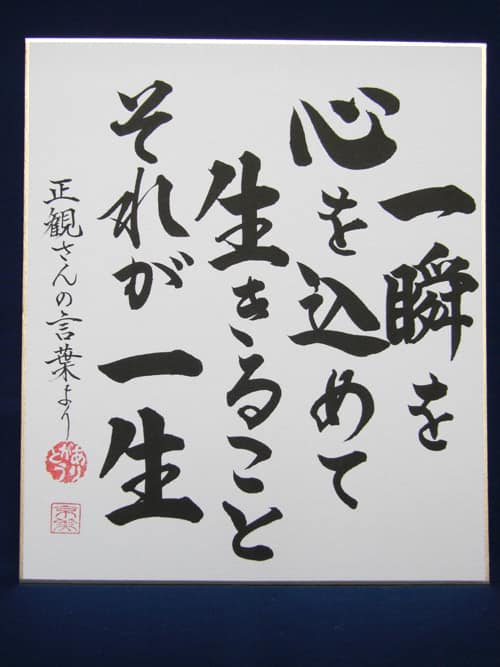 一瞬を
心を込めて
生きること
それが一生
正観さんの言葉より
ありがとう